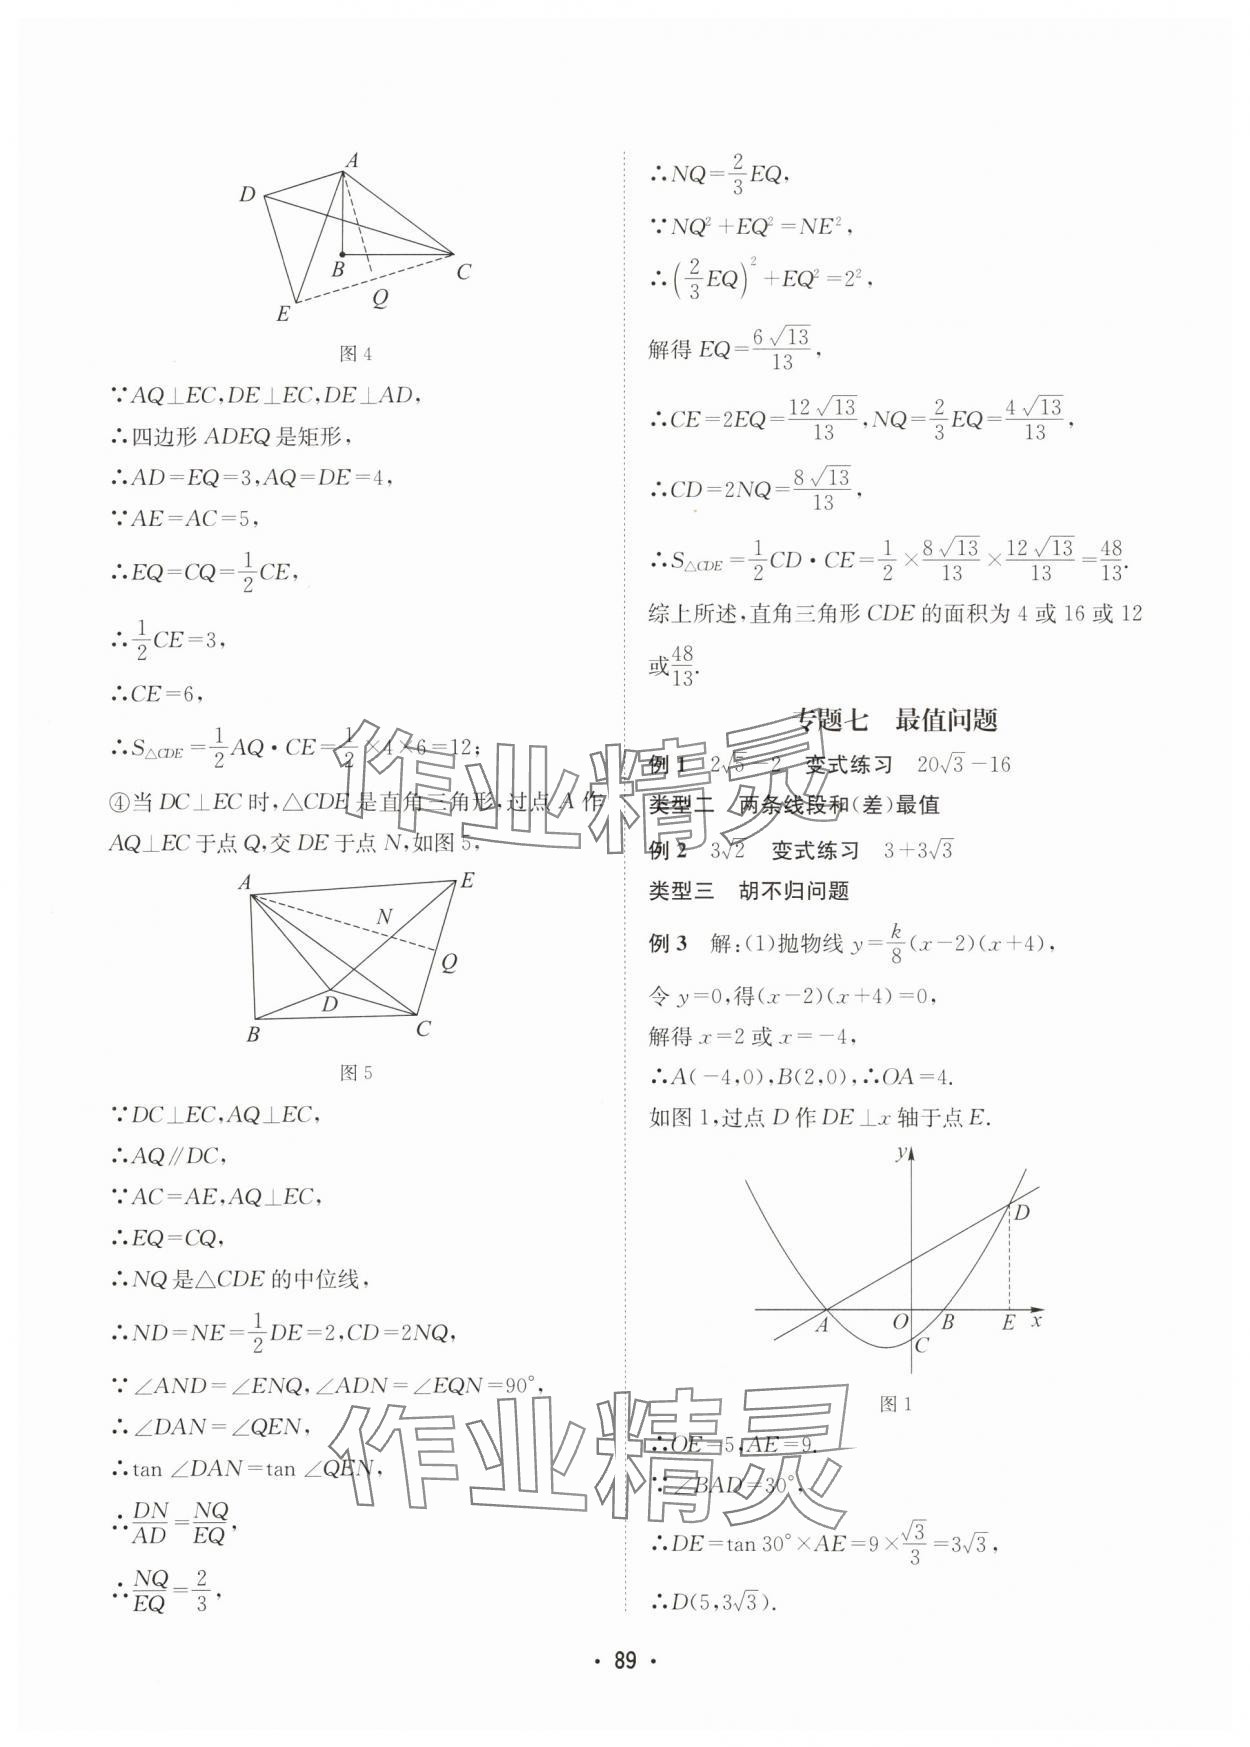 A
D
B
C
Q
E
图4
∵AQ⊥EC,DE⊥EC,DE⊥AD,
∴四边形ADEQ是矩形,
∴AD=EQ=3,AQ=DE=4,
∵AE=AC=5,
∴EQ=CQ=1/2CE,
∴1/2CE=3,
∴CE=6,
∴S△CDE=1/2AQ·CE=1/2×4×6=12;
④当DC⊥EC时,△CDE是直角三角形,过点A作
AQ⊥EC于点Q,交DE于点N,如图5,
A
E
N
Q
D
B
C
图5
∵DC⊥EC,AQ⊥EC,
∴AQ∥DC,
∵AC=AE,AQ⊥EC,
∴EQ=CQ,
∴NQ是△CDE的中位线,
∴ND=NE=1/2DE=2,CD=2NQ,
∵∠AND=∠ENQ,∠ADN=∠EQN=90°,
∴∠DAN=∠QEN,
∴tan∠DAN=tan∠QEN,
∴DN/AD=NQ/EQ,
∴NQ/EQ=2/3,
∴NQ=2/3EQ,
∵NQ²+EQ²=NE²,
∴(2/3EQ)²+EQ²=2²,
解得EQ=6√13/13,
∴CE=2EQ=12√13/13,NQ=2/3EQ=4√13/13,
∴CD=2NQ=8√13/13,
∴S△CDE=1/2CD·CE=1/2×8√13/13×12√13/13=48/13.
综上所述,直角三角形CDE的面积为4或16或12
或48/13.
专题七 最值问题
例1 2√5-2 变式练习 20√3-16
类型二 两条线段和(差)最值
例2 3√2 变式练习 3+3√3
类型三 胡不归问题
例3 解:(1)抛物线y=k/8(x-2)(x+4),
令y=0,得(x-2)(x+4)=0,
解得x=2或x=-4,
∴A(-4,0),B(2,0),∴OA=4.
如图1,过点D作DE⊥x轴于点E.
y
D
A
O
B
E
x
C
图1
∴OE=5,AE=9.
∵∠BAD=30°,
∴DE=tan30°×AE=9×√3/3=3√3,
∴D(5,3√3).
·89·
作业精灵
作业精灵